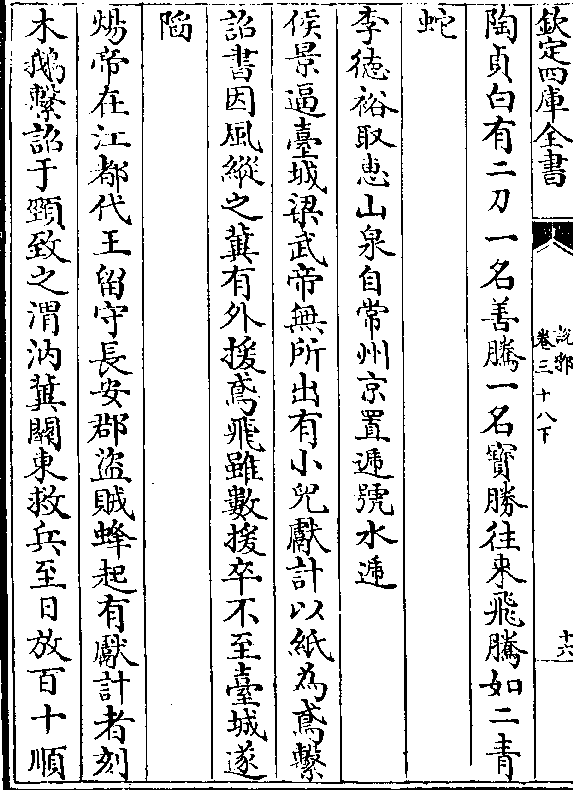 欽定四庫全書
說郛
卷三十八下
十六
陶貞白有二刀一名善騰一名寶勝往來飛騰如二青
蛇
李徳裕取恵山泉自常州京置逓號水逓
侯景逼臺城梁武帝無所出有小兒獻計以紙為鳶繫
詔書因風縱之冀有外援鳶飛雖數援卒不至臺城遂
陷
煬帝在江都代王留守長安郡盗賊蜂起有獻計者刻
木鵝繫詔于頸致之渭汭冀關東救兵至日放百十順